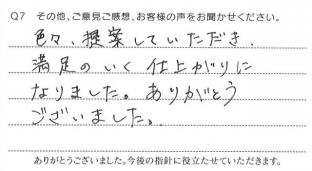 Q7 その他、ご意見ご感想、お客様の声をお聞かせください。
色々、提案していただき、
満足のいく仕上がりに
なりました。ありがとう
ございました。
ありがとうございました。今後の指針に役立たせていただきます。